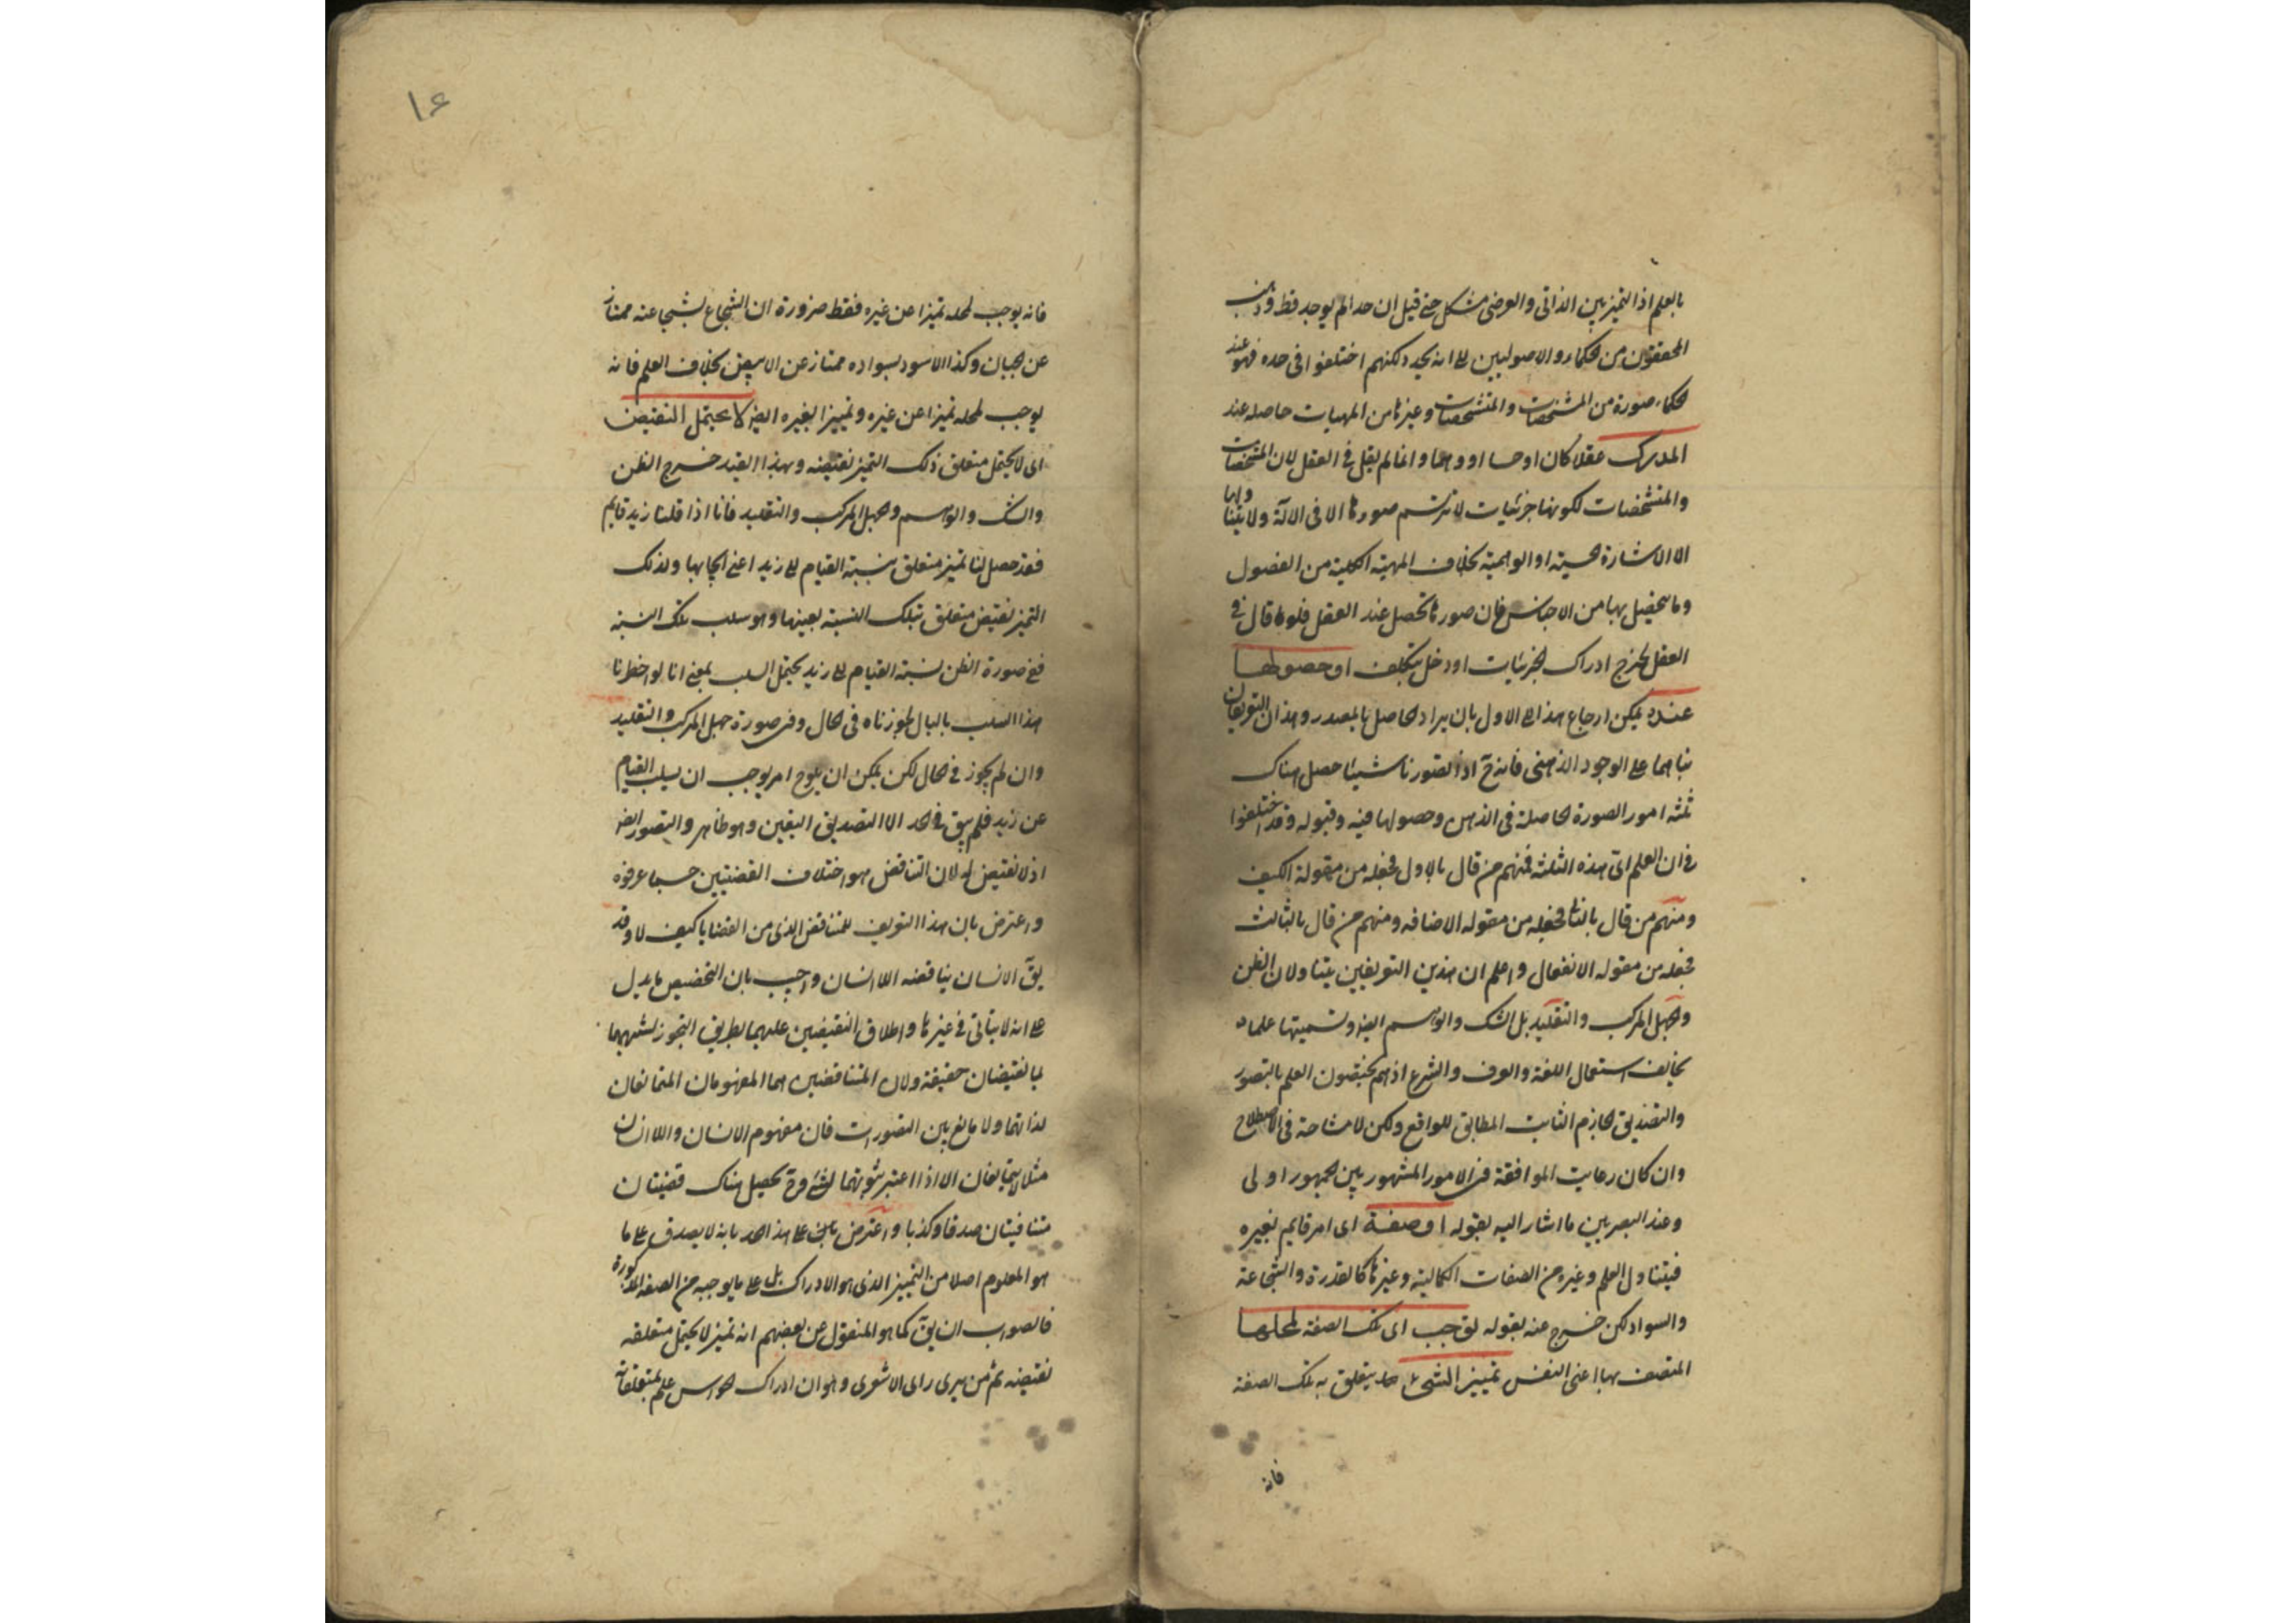 بالعلم اذ التميز بين الذاتى والعرضى مشكل حتى قيل ان حدا لم يوجد قط وذهب
المحققون من الحكماء والاصوليين الى انه يحد ولكنهم اختلفوا فى حده فهو عند
الحكماء صورة من المشخصات والمتشخصات وغيرها من المهيات حاصله عند
المدرك عقلا كان او حسا او وهما وانما لم يقل فى العقل لان المشخصات
والمتشخصات لكونها جزئيات لا ترتسم صورها الا فى الالة ولا يتناولها
الا الاشارة الحسية او الوهمية بخلاف المهية الكلية من الفصول
وما يتحصل بها من الاجناس فان صورها تحصل عند العقل فلو قال فى
العقل لخرج ادراك الجزئيات او دخل بتكلف او حصولها
عنده يمكن ارجاع هذا الى الاول بان يراد الحاصل بالمصدر وهذان التعريفان
بناهما على الوجود الذهنى فانه ح اذا تصورنا شيئا حصل هناك
ثلثه امور الصورة الحاصلة فى الذهن وحصولها فيه وقبوله وقد اختلفوا
فى ان العلم اى هذه الثلثه فمنهم من قال بالاول فجعله من مقولة الكيف
ومنهم من قال بالثانى فجعله من مقوله الاضافه ومنهم من قال بالثالث
فجعله من مقوله الانفعال واعلم ان هذين التعريفين يتناولان الظن
والجهل المركب والتقليد بل الشك والوهم ايضا وتسميتها علما
يخالف استعمال اللغة والعرف والشرع اذ هم يختصون العلم بالتصور
والتصديق الجازم الثابت المطابق للواقع ولكن لا مشاحة فى الاصطلاح
وان كان رعايت الموافقة فى الامور المشهور بين الجمهور اولى
وعند البصريين ما اشار اليه بقوله او صفة اى امر قايم بغيره
فيتناول العلم وغيره من الصفات الكمالية وغيرها كالقدرة والشجاعة
والسواد لكن خرج عنه بقوله توجب اى تلك الصفة لمحلها
المتصف بها اعنى النفس تمييز الشئ مما يتعلق به تلك الصفة
فانه
١٤
فانه يوجب لمحله تميزا عن غيره فقط ضرورة ان الشجاع بشجاعته ممتاز
عن الجبان وكذا الاسود بسواده ممتاز عن الابيض بخلاف العلم فانه
يوجب لمحله تميزا عن غيره وتمييزا لغيره ايضا لا يحتمل النقيض
اى لا يحتمل متعلق ذلك التميز نقيضه وبهذا القيد خرج الظن
والشك والوهم والجهل المركب والتقليد فانا اذا قلنا زيد قايم
فقد حصل لنا تميز متعلق بنسبة القيام الى زيد اعنى ايجابها ولذلك
التميز نقيض متعلق بتلك النسبة بعينها وهو سلب تلك النسبة
ففى صورة الظن نسبة القيام الى زيد يحتمل السلب بمعنى انا لو اخطرنا
هذا السلب بالبال لجوزناه فى الحال وفى صورة جهل المركب والتقليد
وان لم يجوز فى الحال لكن يمكن ان يلوح امر يوجب ان يسلب القيام
عن زيد فلم يبق فى الحد الا التصديق اليقين وهو ظاهر والتصور ايضا
اذ لا نقيض له لان التناقض هو اختلاف القضيتين حسبما عرفوه
واعترض بان هذا التعريف للتناقض الذى من القضايا كيف لا وقد
يق الانسان يناقضه اللاانسان واجيب بان التخصيص ما يدل
على انه لا يتاتى فى غيرها واطلاق النقيضين عليهما بطريق التجوز لشبههما
بما نقيضان حقيقة ولان المتناقضين هما المفهومان المتمانعان
لذاتهما ولا مانع بين التصورات فان مفهوم الانسان واللاانسان
مثلا لا يتمانعان الا اذا اعتبر ثبوتهما لشئ وح تحصيل هناك قضيتان
متنافيتان صدقا وكذبا واعترض على هذا الحد بانه لا يصدق على ما
هو المعلوم اصلا من التمييز الذى هو الادراك بل على ما يوجبه من الصفه المذكورة
فالصواب ان يق كما هو المنقول عن بعضهم انه تميز لا يحتمل متعلقه
نقيضه ثم من يرى راى الاشعرى وهو ان ادراك الحواس علم بمتعلقاته